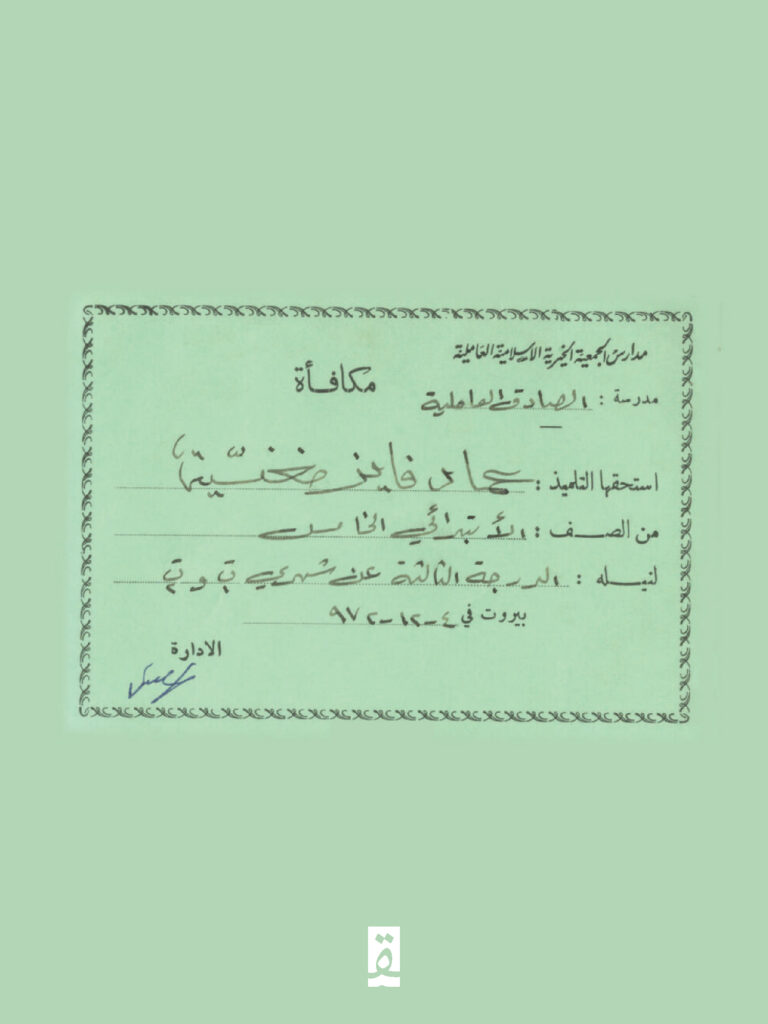 مدارس الجمعية الخيرية الاسلامية العاملية
مكافأة
مدرسة : الصادق العاملية
استحقها التلميذ : عماد فايز مغنيّة
من الصف : الأبتدائي الخامس
لنيله : الدرجة الثالثة عن شهري ت١ و ت٢
بيروت في ٤-١٢-٩٧٢
الادارة